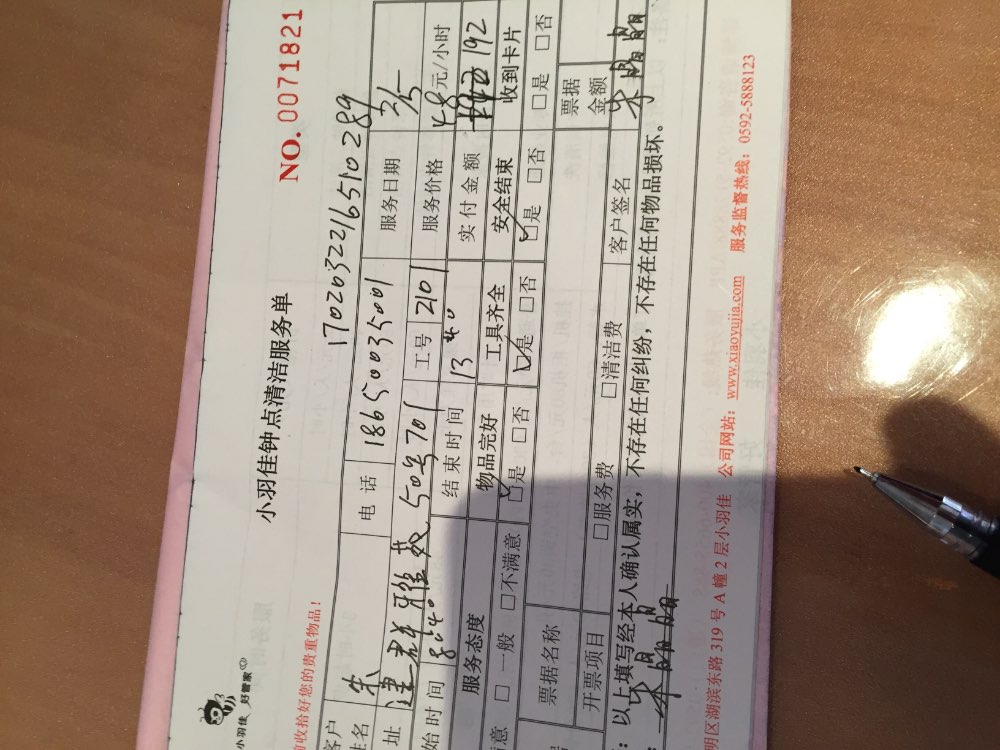 小羽佳 好管家
小羽佳钟点清洁服务单
NO. 0071821
前收拾好您的贵重物品！
1702032216510289
客户
姓名 朱 电话 18650035001 服务日期 3/5
址 建群雅苑 50号701 工号 2101 服务价格 48元/小时
始时间 8:40 结束时间 13:40 实付金额 192
服务态度 物品完好 工具齐全 安全结束 收到卡片
意 □一般 □不满意 ☑是 □否 ☑是 □否 ☑是 □否 □是 □否
票据名称 票据金额
开票项目 □服务费 □清洁费 客户签名
：以上填写经本人确认属实，不存在任何纠纷，不存在任何物品损坏。
明区湖滨东路 319 号 A 幢 2 层小羽佳 公司网站：www.xiaoyujia.com 服务监督热线：0592-5888123